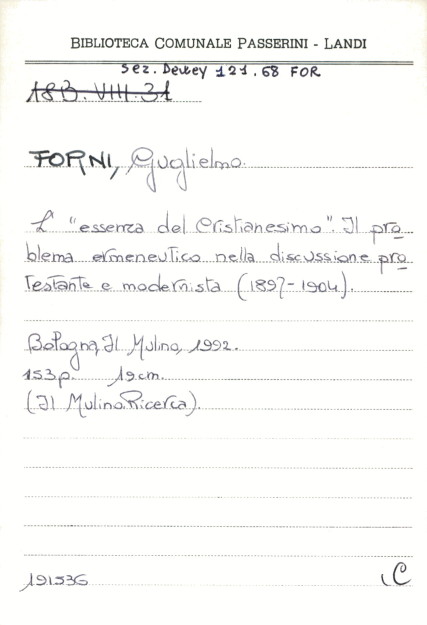 BIBLIOTECA COMUNALE PASSERINI - LANDI
Sez. Dewey 121.68 FOR
18B.VIII.31
FORNI, Guglielmo.
L' "essenza del Cristianesimo". Il pro
blema ermeneutico nella discussione pro
testante e modernista (1897-1904).
Bologna, Il Mulino, 1992.
153p. 19cm.
(Il Mulino.Ricerca).
191536 C